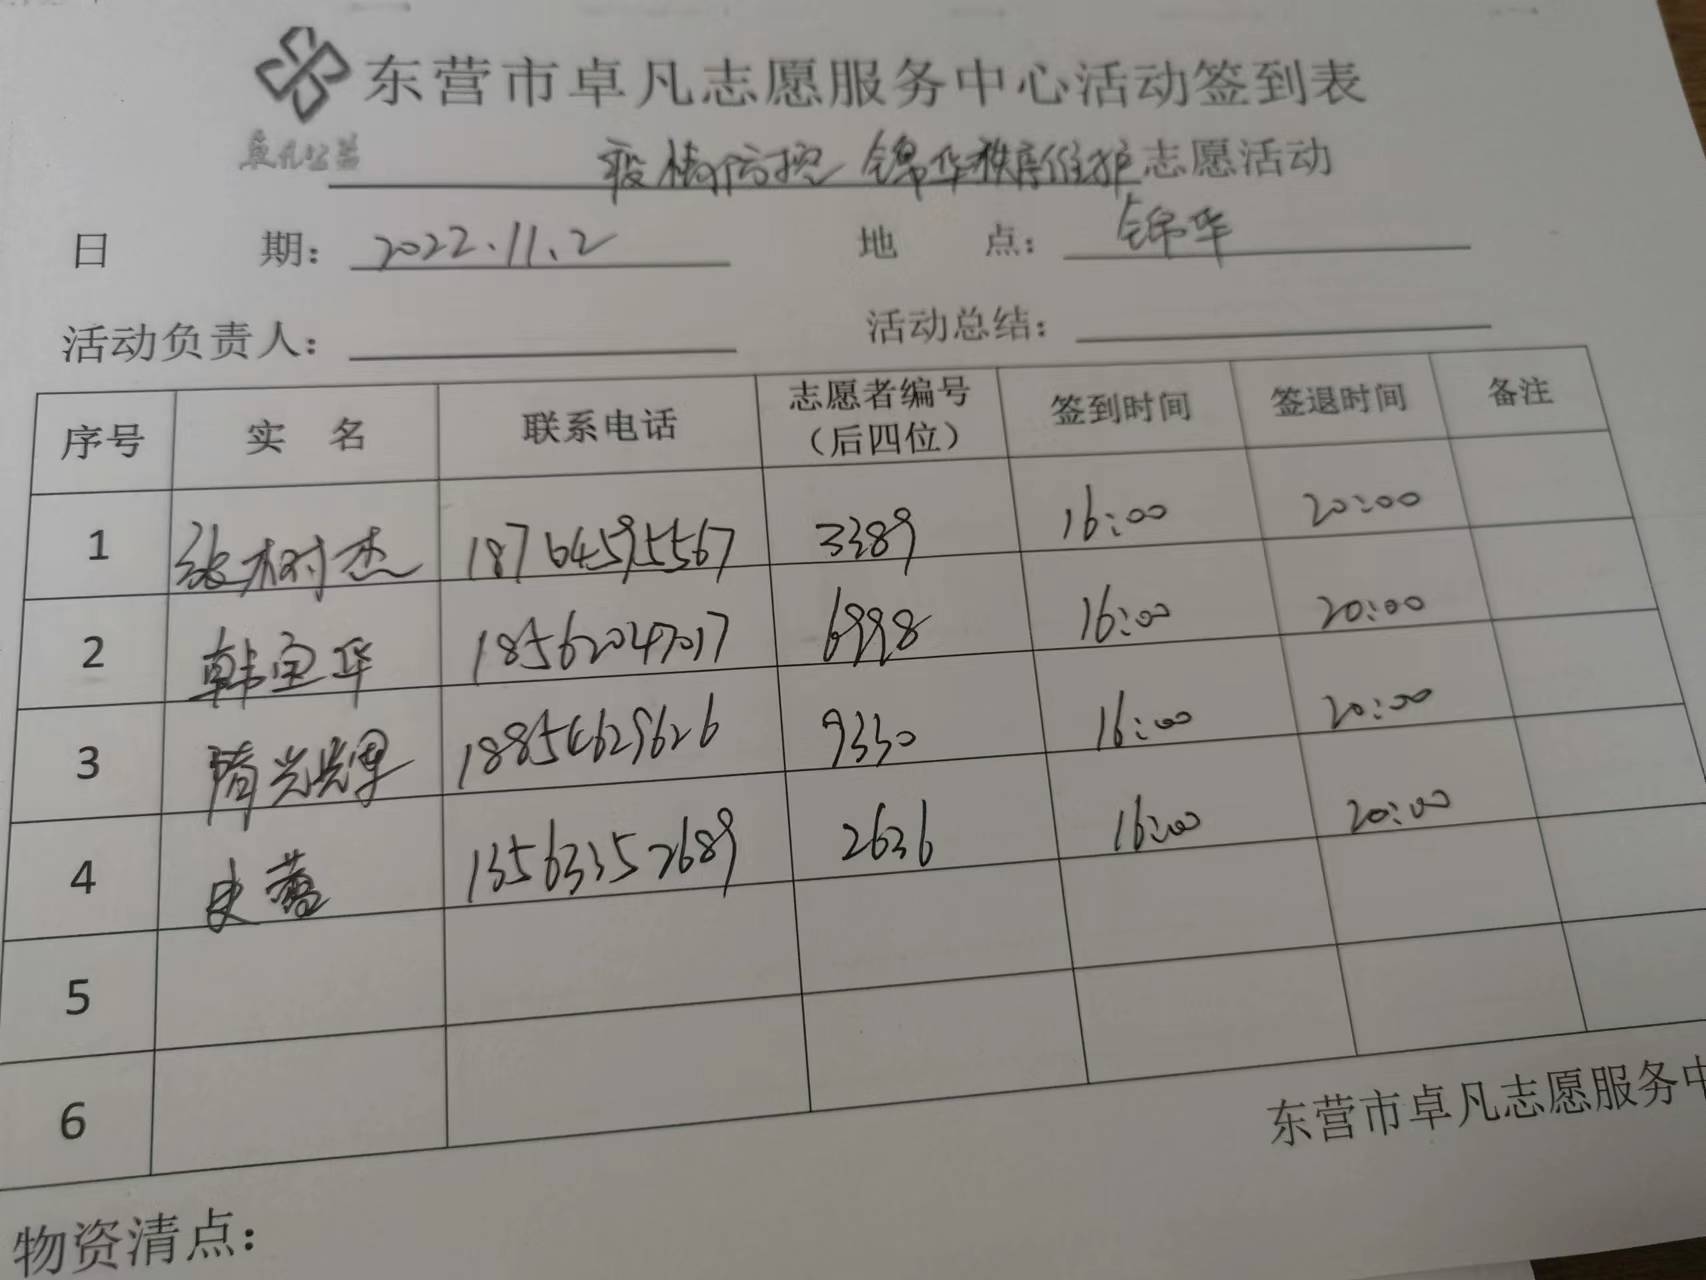 东营市卓凡志愿服务中心活动签到表
卓凡公益
疫情防控 锦华秩序维护志愿活动
日 期：2022.11.2 地 点：锦华
活动负责人： 活动总结：
序号 实 名 联系电话 志愿者编号（后四位） 签到时间 签退时间 备注
1 张树杰 18764595567 3389 16:00 20:00
2 韩宝华 18562047017 6998 16:00 20:00
3 隋光辉 18854629626 9330 16:00 20:00
4 史蕾 13563352689 2636 16:00 20:00
5
6
东营市卓凡志愿服务中
物资清点：